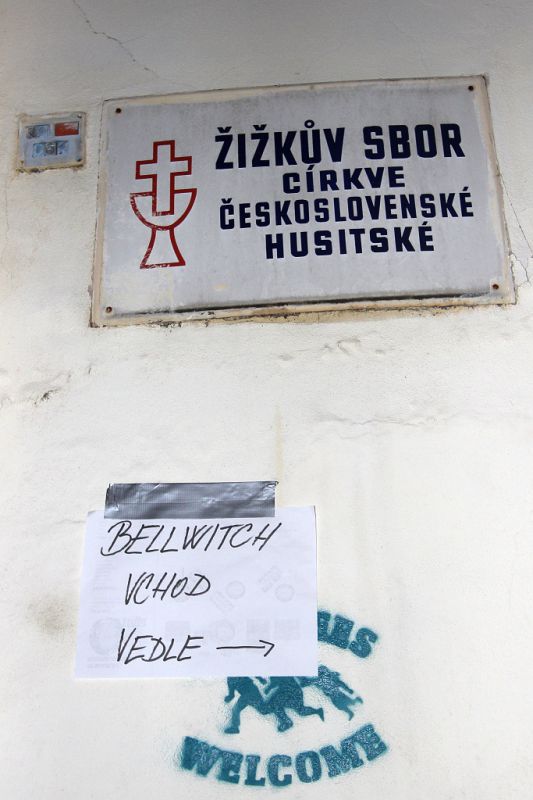 ŽIŽKŮV SBOR
CÍRKVE
ČESKOSLOVENSKÉ
HUSITSKÉ
BELLWITCH
VCHOD
VEDLE →
WELCOME